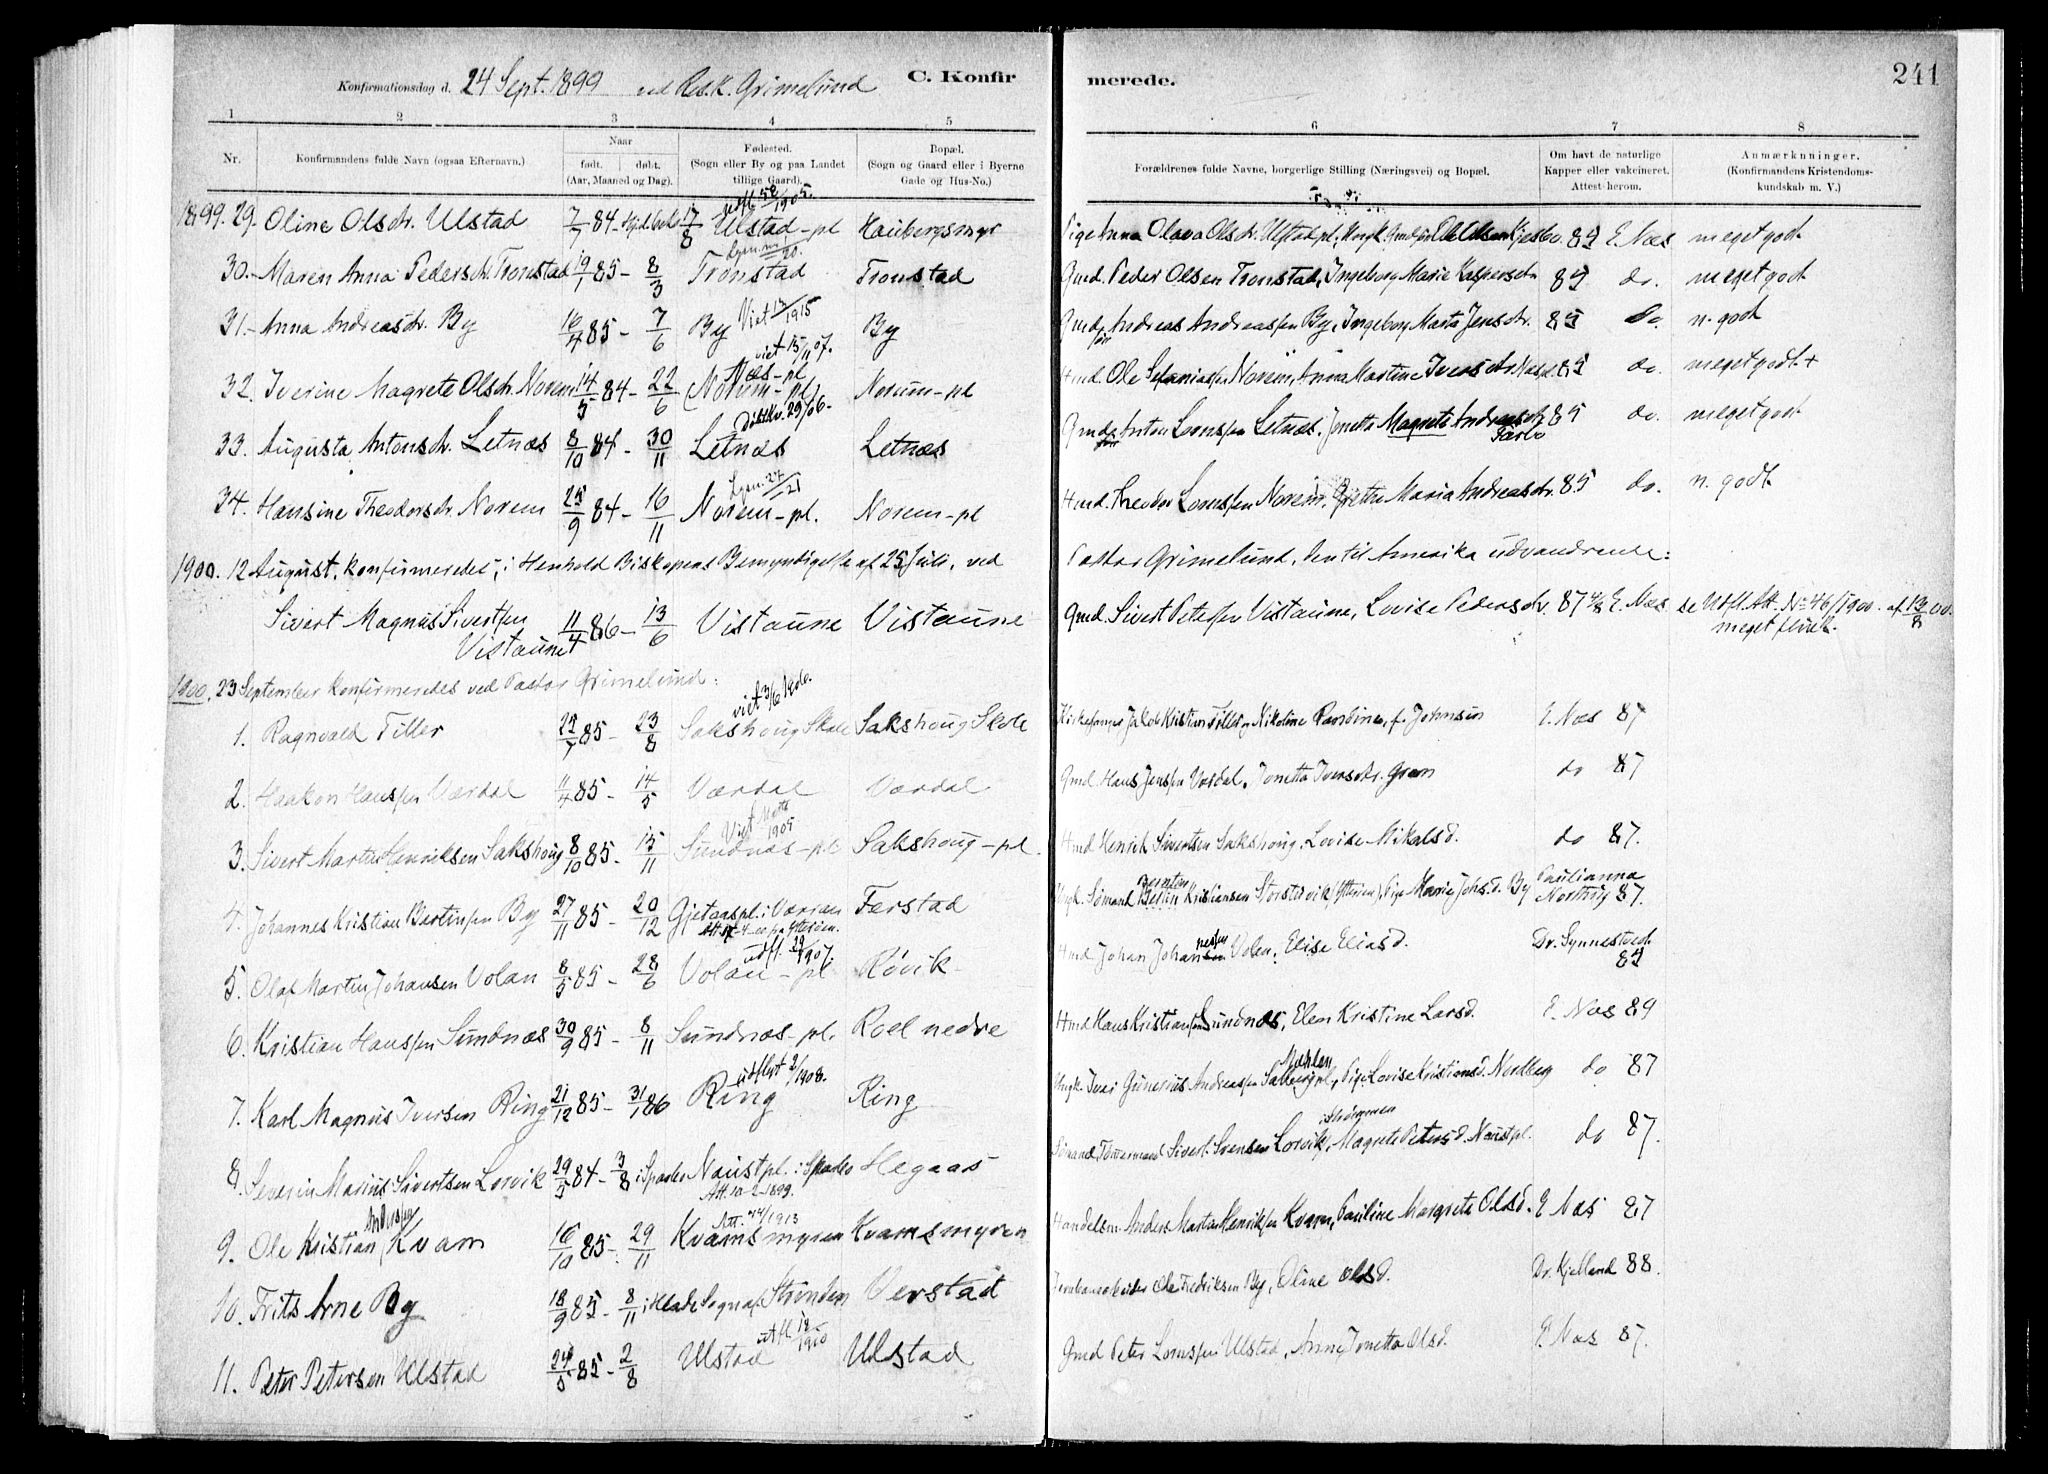 Konfirmationsdag d. 24 Sept. 1899 ved Res.k. Grimelund C. Konfirmerede. 241
1 2 3 4 5 6 7 8
Nr. Konfirmandens fulde Navn (ogsaa Efternavn.) Naar født. døbt. (Aar, Maaned og Dag). Fødested. (Sogn eller By og paa Landet tillige Gaard). Bopæl. (Sogn og Gaard eller i Byerne Gade og Hus-No.) Forældrenes fulde Navne, borgerlige Stilling (Næringsvei) og Bopæl. Om havt de naturlige Kopper eller vakcineret. Attest herom. Anmærkninger. (Konfirmandens Kristendomskundskab m. V.)
1899. 29. Oline Olsdr. Ulstad 7/7 84 - 17/8 Ulstad-pl Haubergsmyr Pige Anna Olava Olsdr. Ulstad pl., 89 E. Næs meget godt
30. Maren Anna Pedersdr. Tronstad 19/1 85 - 8/3 Tronstad Tronstad Gmd. Peder Olsen Tronstad, Ingeborg Marie Kaspersdr. 89 do. meget godt
31. Anna Andreasdr. By 16/4 85 - 7/6 By Viet 1915 By Gmd. Andreas Andreassen By, Ingeborg Marta Jensdr. 85 do. n. godt
32. Iverine Magrete Olsdr. Norem 14/5 84 - 22/6 viet 15/11 07. Næs-pl (Norum-pl) Norum-pl Hmd. Ole Norem, Anna Martine Iversdr. do. meget godt +
33. Augusta Antonsdr. Letnæs 8/10 84 - 30/11 Letnæs Letnæs Gmd. Anton Lornssen Letnæs, Magrete Andreasdr. 85 do. meget godt
34. Hansine Theodorsdr. Norem 25/9 84 - 16/11 Norem-pl. Norem-pl Hmd. Theodor Lornssen Norem, Grethe Maria Andreasdr. 85 do. n. godt
1900. 12 August, konfirmeredes, i Henhold Biskopens Bemyndigelse af 25 Juli, ved Pastor Grimelund, den til Amerika udvandrende:
Sivert Magnus Sivertsen Vistaunet 11/4 86 - 13/6 Vistaune Vistaune Gmd. Sivert Petersen Vistaune, Lovise Pedersdr. 87 E. Næs se Udfl. Att. No 46/1900. af 13/8 00. meget flink.
1900. 23 September konfirmeredes ved Pastor Grimelund:
1. Ragnvald Tiller /7 85 - 23/8 viet 3/6 Sakshoug Skole Sakshoug Skole Kirkesanger Jakob Kristian Tiller og Nikoline f. Johnsen E. Næs 87
2. Haakon Hanssen Værdal 11/4 85 - 14/5 Værdal Værdal Gmd. Hans Jenssen Værdal, Jonetta Iversdr. Gran do 87
3. Sivert Martin Henriksen Sakshoug 8/10 85 - 15/11 Viet 1905 Sundnæs-pl Sakshoug-pl. Hmd Henrik Sivertsen Sakshoug, Lovise Mikalsd. do 87.
4. Johannes Kristian Bertinsen By 27/11 85 - 20/12 Gjetaspl. i Færstad Ungk. Sømand Bertin Kristiansen Pige Marie Johsd. By Paulianna 87.
5. Olaf Martin Johansen Volan 8/5 85 - 28/6 udfl. 1907. Volan-pl Røvik Hmd Johan Volan, Elise Eliasd. Dr. Synnestvedt 89
6. Kristian Hanssen Sundnæs 30/9 85 - 8/11 Sundnæs-pl. Roel nedre Hmd Hans Kristianssen Sundnæs, Elen Kristine Larsd. E. Næs 89
7. Karl Magnus Iversen Ring 21/12 85 - 31/1 86 udflyt 2/1908. Ring Ring Ungk. Ivar Gunerius Andreassen Salberg pl., Pige Lovise Kristiansd. Nordberg do 87
8. Severin Marius Sivertsen Lorvik 29/5 84 - 3/8 i Sparbo Naustpl. i Sparbo Att. 10-2-1899. Hegaas Sømand Tømmermand Sivert Svensen Lorvik, Magrete Petersd. Naustpl. do 87.
9. Ole Kristian Anderssen Kvam 16/10 85 - 29/11 Att. 44/1913 Kvamsmyren Kvamsmyren Handelsm. Anders Martin Henriksen Kvam, Pauline Margrete Olsd. E. Næs 87
10. Frits Arne By 18/9 85 - 8/11 i Hlade Sogn af Strinden Verstad Jernbanearbeider Ole Fredriksen By, Oline Olsd. Dr. Kjelland 88.
11. Peter Petersen Ulstad 24/5 85 - 2/8 Ulstad utfl. 1910 Ulstad Gmd Peter Lornssen Ulstad, Anne Jonetta Olsd. E. Næs 87.